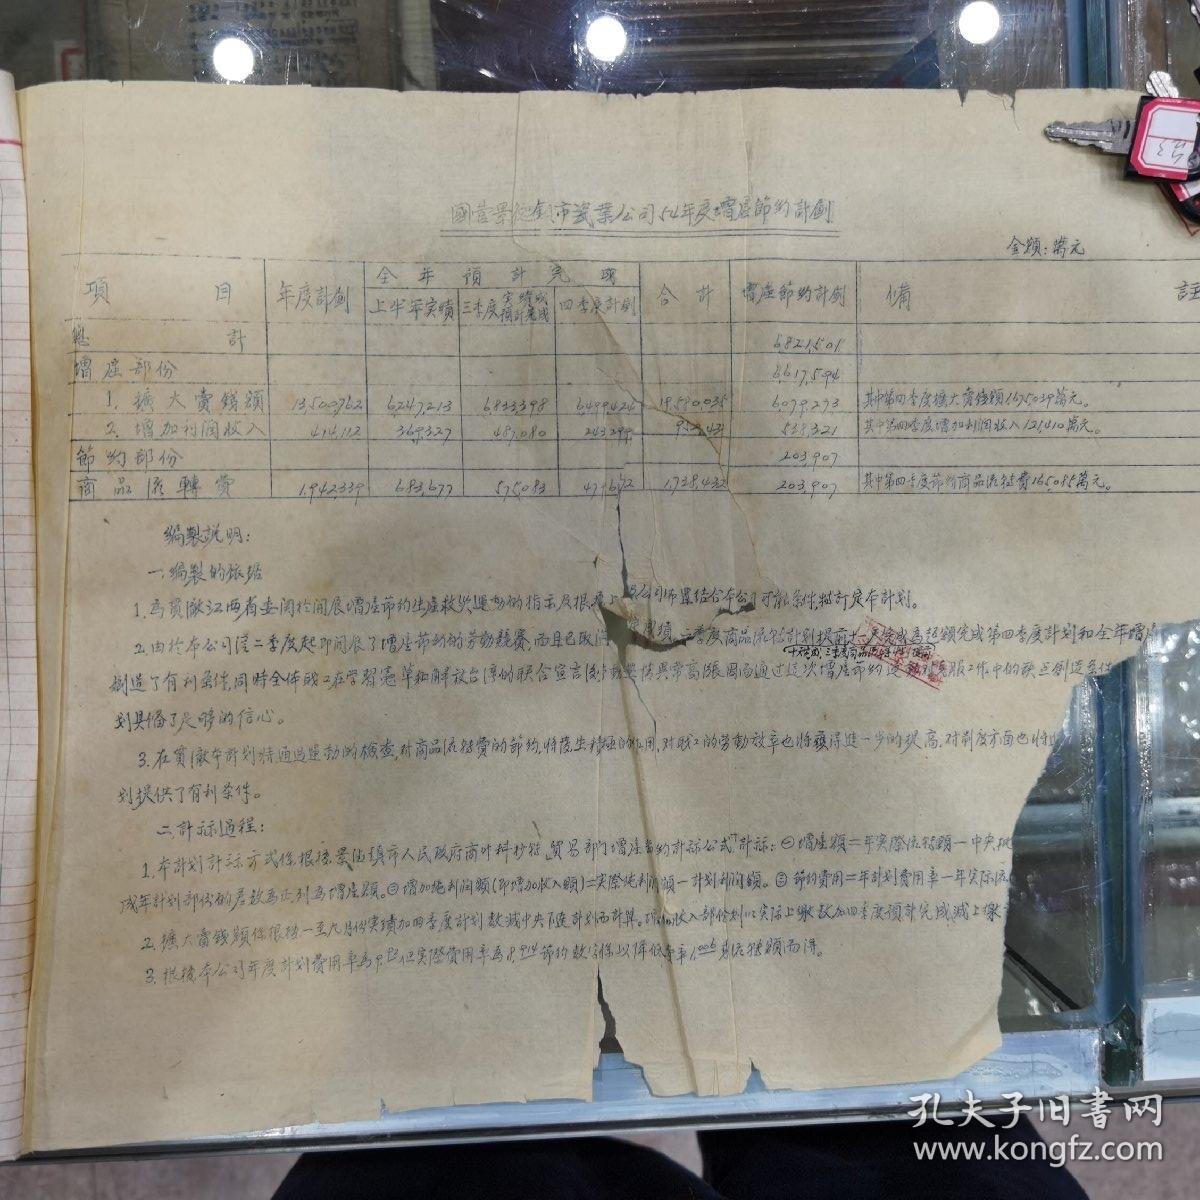 國营景德鎮市瓷業公司54年度增產節約計劃
金額：萬元
項 目 年度計劃 全年預計完成 合計 增產節約計劃 備 註
上半年实績 三季度实績或預計完成 四季度計劃
總 計 6821,501
增產部份 6,617,594
1. 擴大賣錢額 13,500,762 6,247,213 6,833,398 6,499,424 19,580,035 6,079,273 其中第四季度擴大賣錢額1,675,039萬元。
2. 增加利润收入 414,112 369,327 487,080 538,321 其中第四季度增加利润收入121,410萬元。
節約部份 203,907
商品流轉費 1,942,339 683,677 575,083 479,672 1,738,432 203,907 其中第四季度節約商品流轉費165,085萬元。
編製說明：
一、編製的依据
1. 為貫澈江西省委関於開展增產節約生產救災運動的指示及根 公司佈置結合本公司可能条件,特訂定本計划。
2. 由於本公司從二季度起即開展了增產節約的劳動競賽,而且已取得 成績,二季度商品流轉計划提前十一天完成為超額完成第四季度計划和全年增產
創造了有利条件,同時全体战工在学習憲草和解放台湾的联合宣言後 情異常高漲因而通過這次增產節約運動 克服工作中的缺点創造条件
划具備了足够的信心。
3. 在貫澈本計划時,通過運動的檢查,对商品流轉費的節約,將產生積極的作用,对战工的劳動效率也將獲得進一步的提高,对制度方面也將
划提供了有利条件。
二、計祘過程：
1. 本計划計祘方式係根據景德鎮市人民政府商业科抄转"貿易部门增產節約計祘公式"計祘：㊀增產額＝年实際流轉額－中央
成年計划部份的差数為正列為增產額。㊁增加純利润額(即增加收入額)＝实際純利润額－計划利润額。㊂節約費用＝年計划費用率－年实際流
2. 擴大賣錢額係根據一至九月份实績加四季度計划数減中央下達計划而計算。 收入部份則以实际上繳数加四季度預計完成減上繳
3. 根據本公司年度計划費用率為 但实際費用率為 節約数字係以降低 率 流轉額而得。
孔夫子旧書网
www.kongfz.com